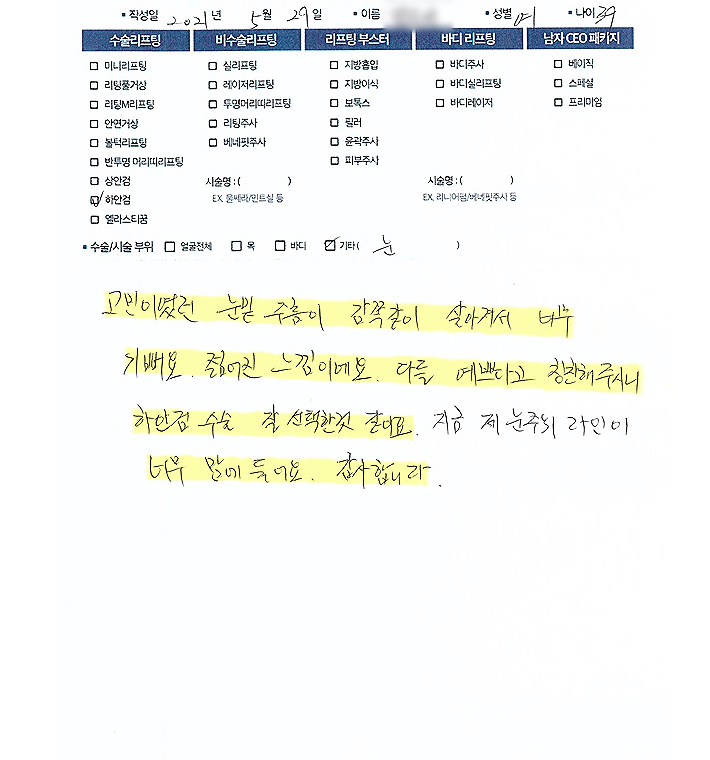 ▪ 작성일 2021년 5월 29일 ▪ 이름 ▪ 성별 여 ▪ 나이 39
수술리프팅 비수술리프팅 리프팅 부스터 바디 리프팅 남자 CEO 패키지
미니리프팅 실리프팅 지방흡입 바디주사 베이직
리팅풀거상 레이저리프팅 지방이식 바디실리프팅 스페셜
리팅M리프팅 투명머리띠리프팅 보톡스 바디레이저 프리미엄
안면거상 리팅주사 필러
볼턱리프팅 베네핏주사 윤곽주사
반투명 머리띠리프팅 피부주사
상안검 시술명 : ( ) 시술명 : ( )
하안검 EX. 울쎄라/민트실 등 EX. 리니어펌/베네핏주사 등
엘라스티꿈
▪ 수술/시술 부위 얼굴전체 목 바디 기타 ( 눈 )
고민이였던 눈밑 주름이 감쪽같이 살아겨서 너무
기뻐요. 젊어진 느낌이에요. 다들 예쁘다고 칭찬해주시니
하안검 수술 잘 선택한것 같아요. 지금 제 눈주위 라인이
너무 맘에 들어요. 감사합니다.